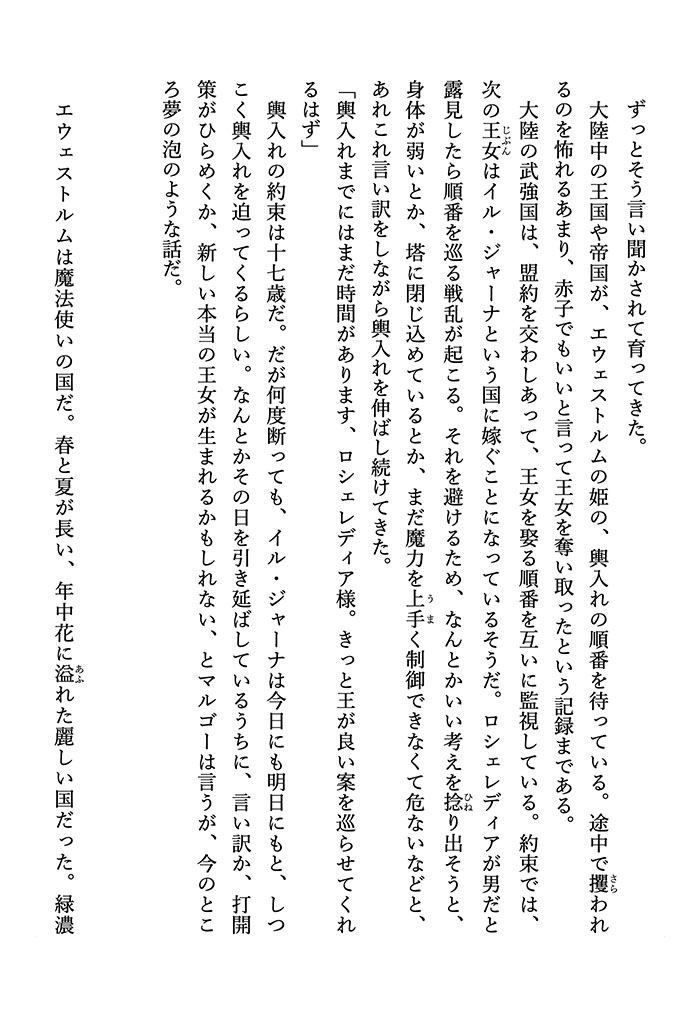 ずっとそう言い聞かされて育ってきた。
大陸中の王国や帝国が、エウェストルムの姫の、輿入れの順番を待っている。途中で攫われ
るのを怖れるあまり、赤子でもいいと言って王女を奪い取ったという記録まである。
大陸の武強国は、盟約を交わしあって、王女を娶る順番を互いに監視している。約束では、
次の王女はイル・ジャーナという国に嫁ぐことになっているそうだ。ロシェレディアが男だと
露見したら順番を巡る戦乱が起こる。それを避けるため、なんとかいい考えを捻り出そうと、
身体が弱いとか、塔に閉じ込めているとか、まだ魔力を上手く制御できなくて危ないなどと、
あれこれ言い訳をしながら輿入れを伸ばし続けてきた。
「輿入れまでにはまだ時間があります、ロシェレディア様。きっと王が良い案を巡らせてくれ
るはず」
輿入れの約束は十七歳だ。だが何度断っても、イル・ジャーナは今日にも明日にもと、しつ
こく輿入れを迫ってくるらしい。なんとかその日を引き延ばしているうちに、言い訳か、打開
策がひらめくか、新しい本当の王女が生まれるかもしれない、とマルゴーは言うが、今のとこ
ろ夢の泡のような話だ。
エウェストルムは魔法使いの国だ。春と夏が長い、年中花に溢れた麗しい国だった。緑濃